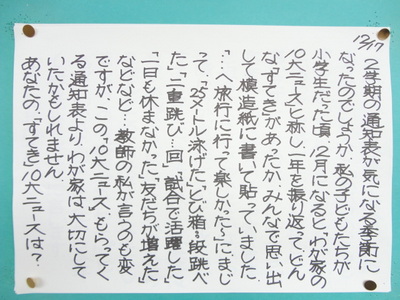 12/17
2学期の通知表が気になる季節に
なったのでしょうか、私の子どもたちが
小学生だった頃、12月になると「わが家の
10大ニュース」と称し、一年を振り返って、どん
な「すてき」があったか、みんなで思い出
して模造紙に書いて貼っていました。
「…へ旅行に行って楽しかった〜」にまじ
って、「25メートル泳げた」「とび箱8段跳べ
た」「二重跳び…回」「試合で活躍した」
「一日も休まなかった」「友だちが増えた」
などなど…教師の私が言うのも変
ですが、この、"10大ニュース"もらってく
る通知表より、わが家は大切にして
いたかもしれません
あなたの、「すてき」10大ニュースは?